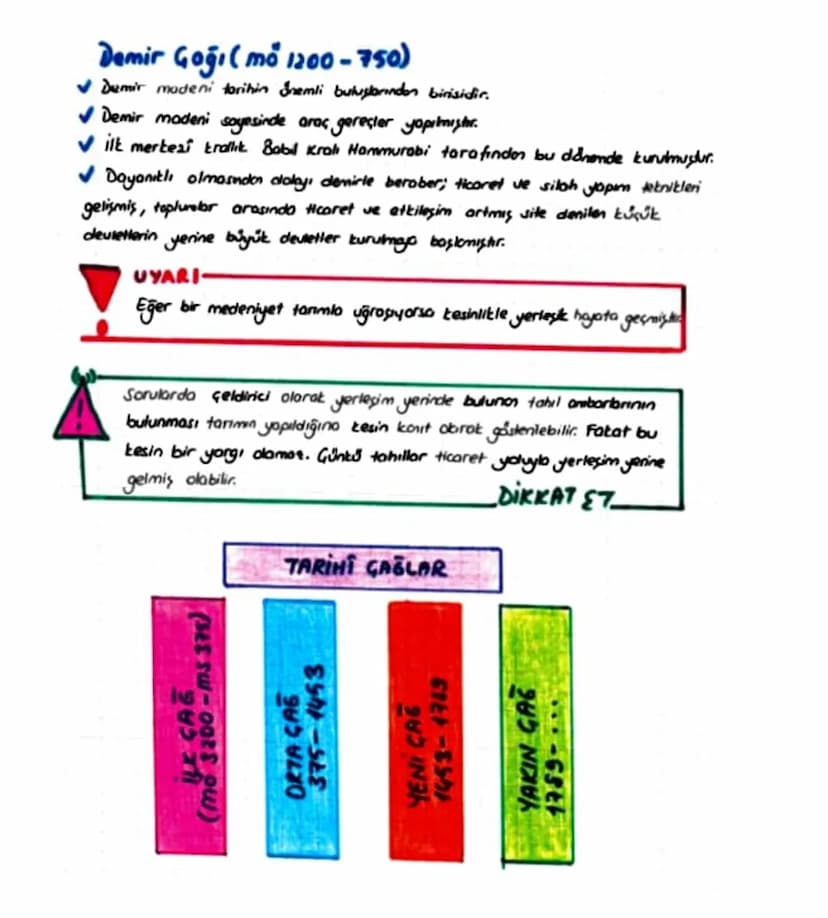 Demir Çağı (mö 1200 - 750)
Demir madeni tarihin önemli buluşlarından birisidir.
Demir madeni sayesinde araç gereçler yapılmıştır.
İlk merkezî krallık Babil Kralı Hammurabi tarafından bu dönemde kurulmuştur.
Dayanıklı olmasından dolayı demirle beraber; ticaret ve silah yapım teknikleri
gelişmiş, toplumlar arasında ticaret ve etkileşim artmış site denilen küçük
devletlerin yerine büyük devletler kurulmaya başlamıştır.
UYARI
Eğer bir medeniyet tarımla uğraşıyorsa kesinlikle yerleşik hayata geçmiştir.
Sorularda çeldirici olarak yerleşim yerinde bulunan tahıl ambarlarının
bulunması tarımın yapıldığına kesin kanıt olarak gösterilebilir. Fakat bu
kesin bir yargı olamaz. Çünkü tahıllar ticaret yoluyla yerleşim yerine
gelmiş olabilir.
DİKKAT ET
TARİHÎ ÇAĞLAR
İLK ÇAĞ
(mö 3200 - ms 375)
ORTA ÇAĞ
375 - 1453
YENİ ÇAĞ
1453 - 1789
YAKIN ÇAĞ
1789 - ...